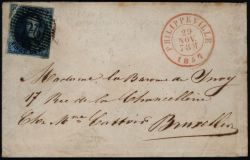 PHILIPPEVILLE
29
NOV.
1857
Madame la Baronne de
17 Rue de la Chancellerie
Chez Mme
Bruxelles